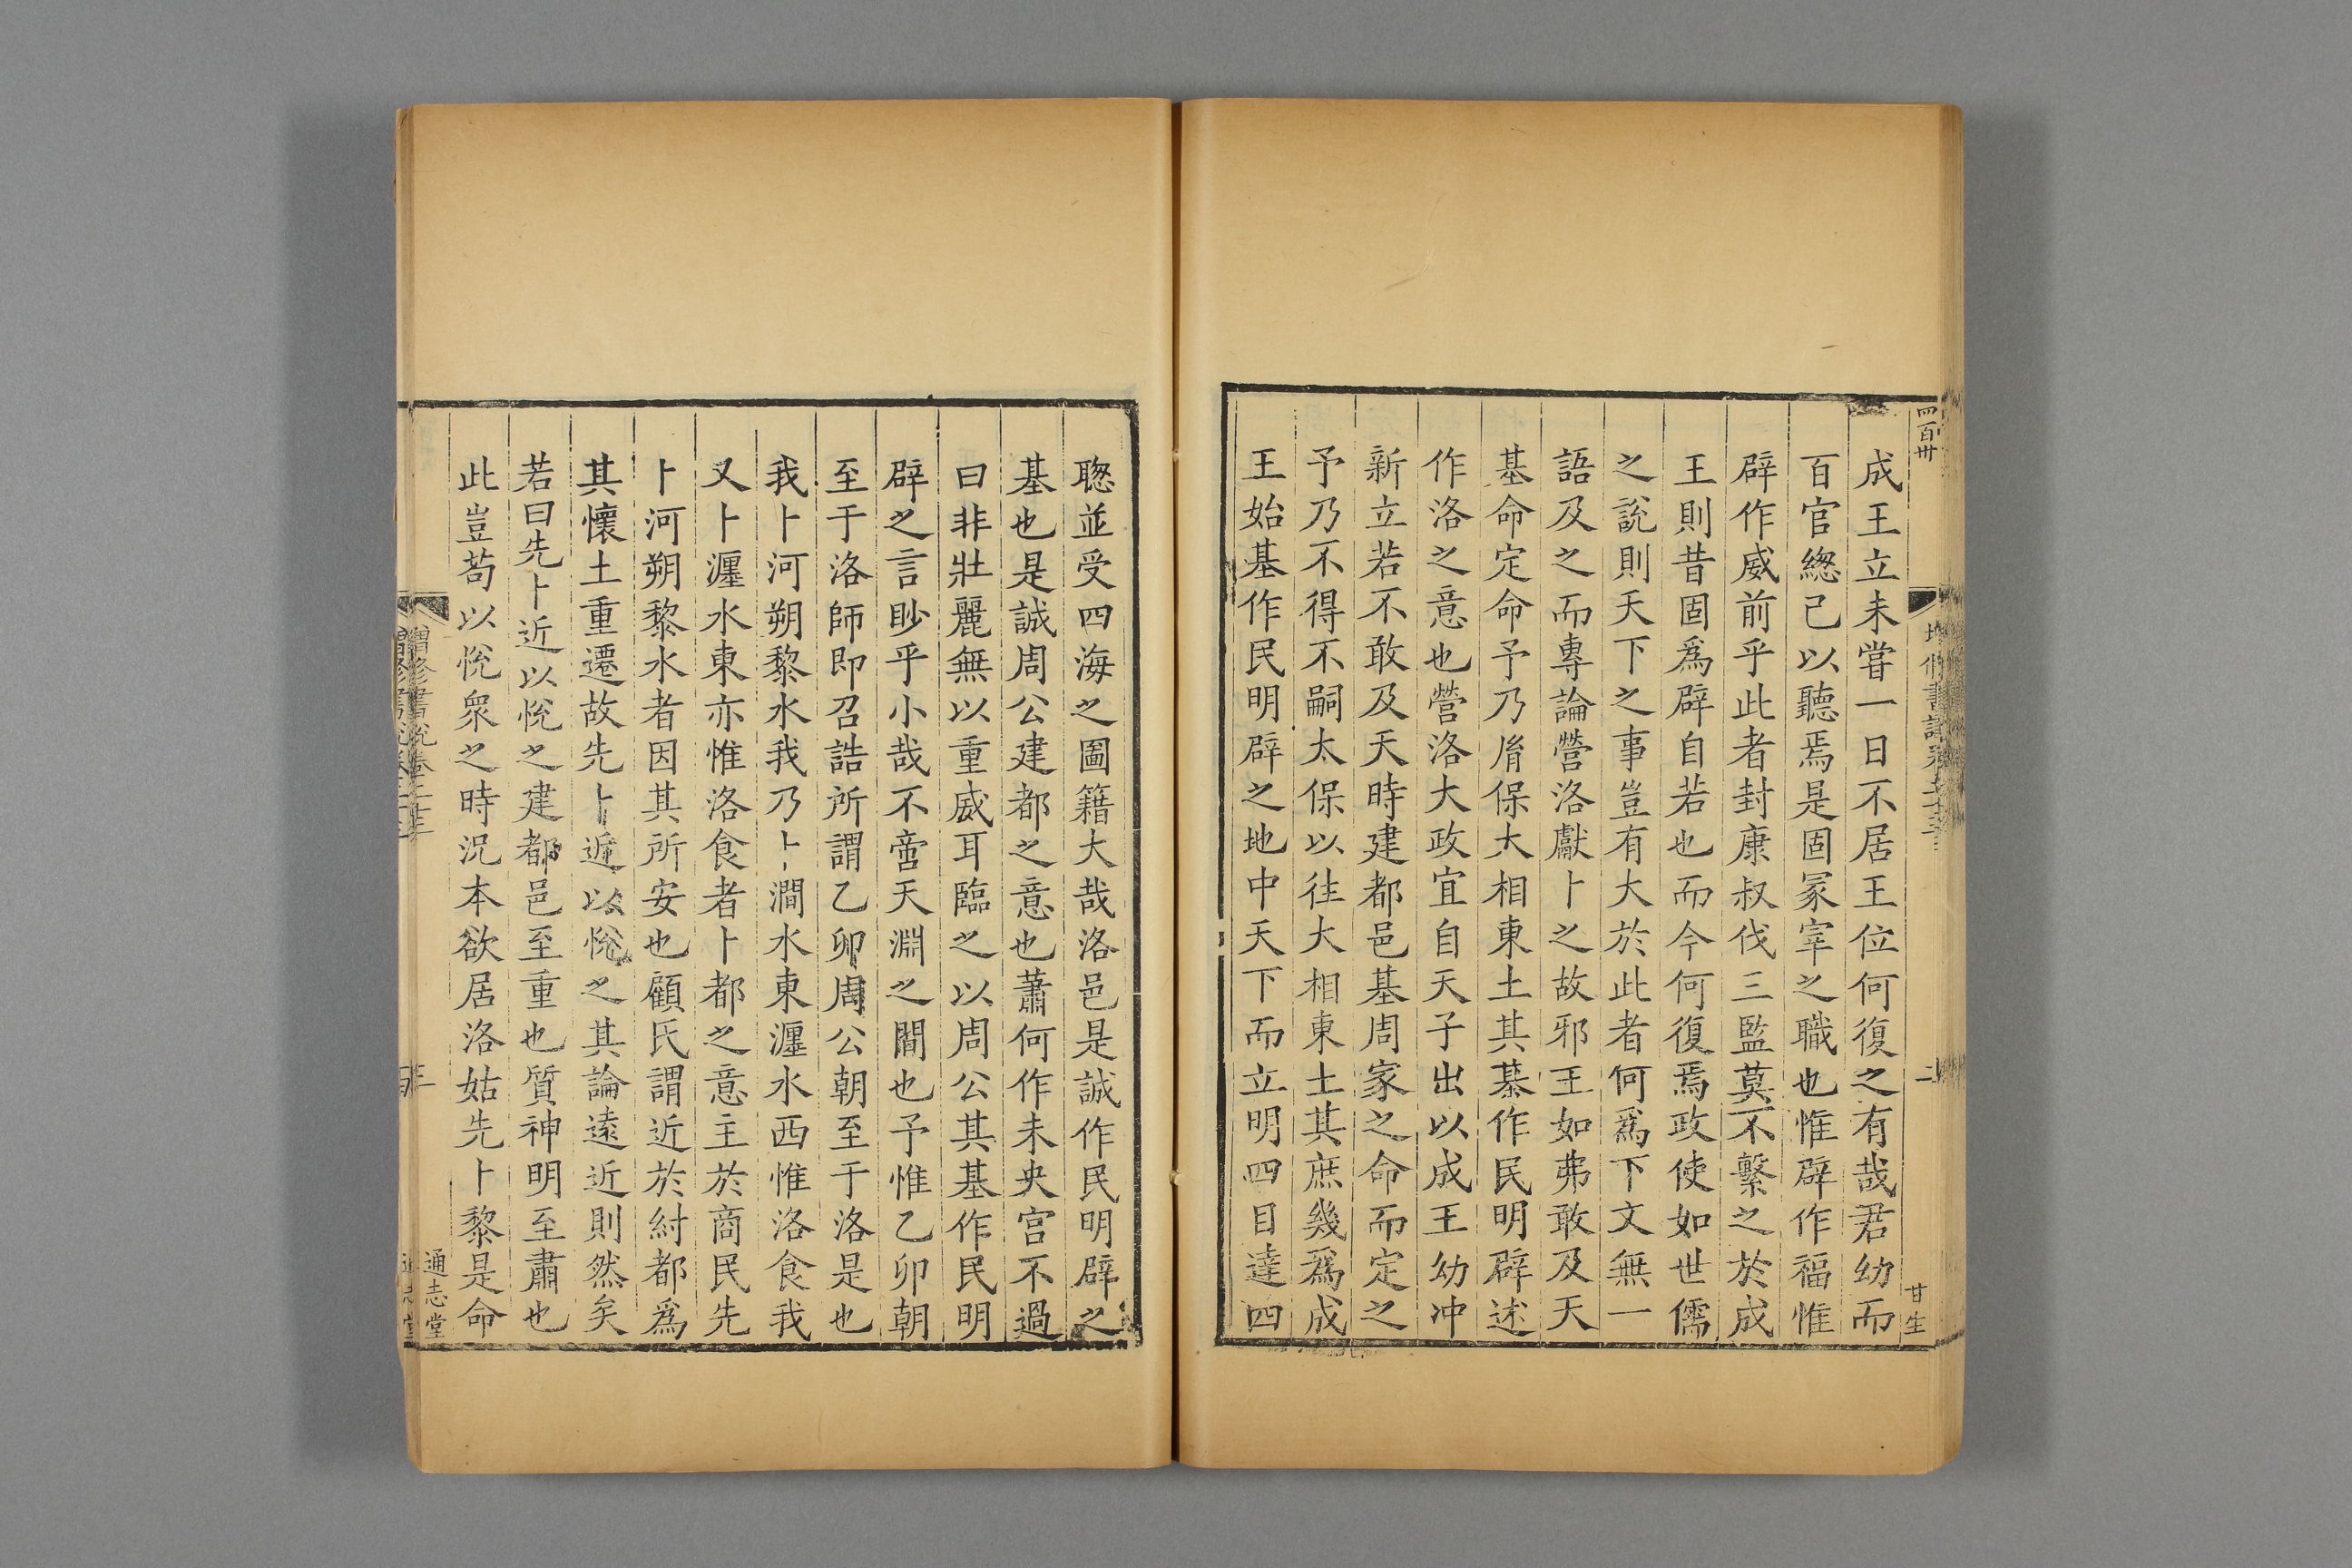 四百卅
甘生
成王立未嘗一日不居王位何復之有哉君幼而
百官緫己以聽焉是固冢宰之職也惟辟作福惟
辟作威前乎此者封康叔伐三監莫不繫之於成
王則昔固爲辟自若也而今何復焉政使如世儒
之說則天下之事豈有大於此者何爲下文無一
語及之而專論營洛獻卜之故邪王如弗敢及天
基命定命予乃胤保大相東土其基作民明辟述
作洛之意也營洛大政宜自天子出以成王幼冲
新立若不敢及天時建都邑基周家之命而定之
予乃不得不嗣太保以往大相東土其庶幾爲成
王始基作民明辟之地中天下而立明四目達四
聦並受四海之圖籍大哉洛邑是誠作民明辟之
基也是誠周公建都之意也蕭何作未央宫不過
曰非壯麗無以重威耳臨之以周公其基作民明
辟之言眇乎小哉不啻天淵之閒也予惟乙卯朝
至于洛師即召誥所謂乙卯周公朝至于洛是也
我卜河朔黎水我乃卜澗水東瀍水西惟洛食我
又卜瀍水東亦惟洛食者卜都之意主於商民先
卜河朔黎水者因其所安也顧氏謂近於紂都爲
其懷土重遷故先卜近以悅之其論遠近則然矣
若曰先卜近以悅之建都邑至重也質神明至肅也
此豈苟以悅衆之時況本欲居洛姑先卜黎是命
增修書說卷二十三
通志堂